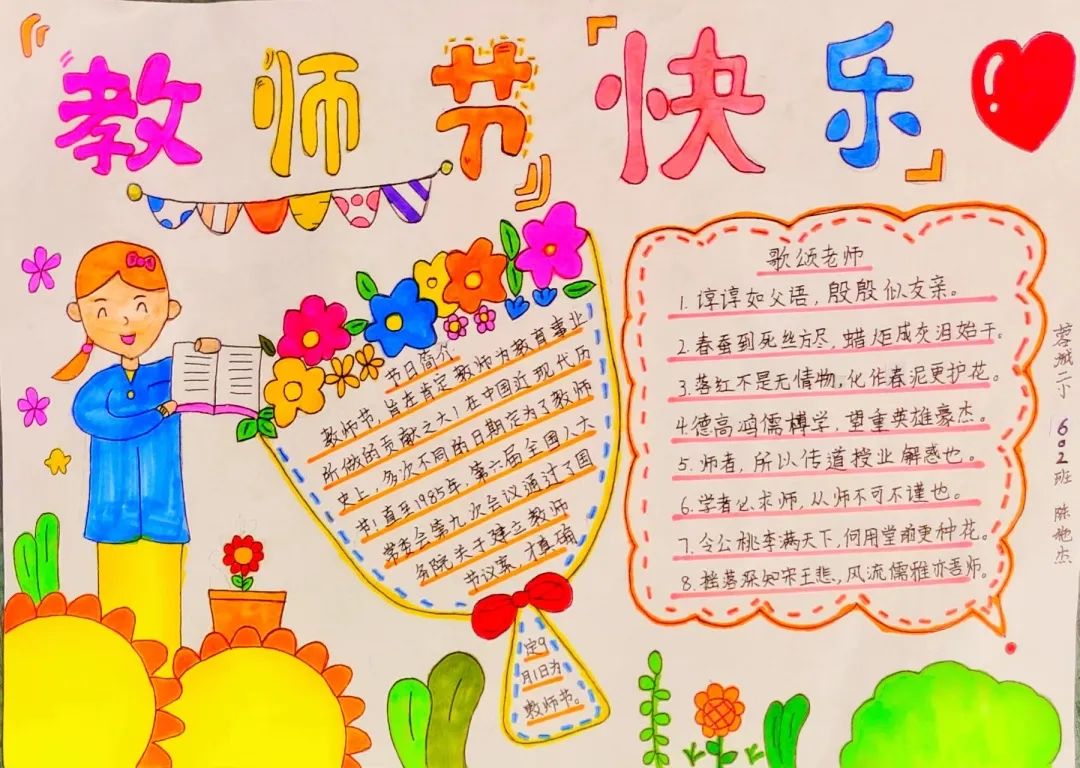 教师节快乐
节日简介
教师节,旨在肯定教师为教育事业
所做的贡献之大!在中国近现代历
史上,多次不同的日期定为了教师
节!直至1985年,第六届全国人大
常委会第九次会议通过了国
务院关于建立教师
节议案,才真确
定9
月1日为
教师节。
歌颂老师
1.谆谆如父语,殷殷似友亲。
2.春蚕到死丝方尽,蜡炬成灰泪始干。
3.落红不是无情物,化作春泥更护花。
4.德高鸿儒博学,望重英雄豪杰。
5.师者,所以传道授业解惑也。
6.学者必求师,从师不可不谨也。
7.令公桃李满天下,何用堂前更种花。
8.摇落深知宋王悲,风流儒雅亦吾师。
蓉城二小 602班 陈